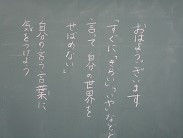 おはようございます
「すぐに「きらい」「いや」などと
言って自分の世界を
せばめない」
自分の言う言葉に
気をつけよう